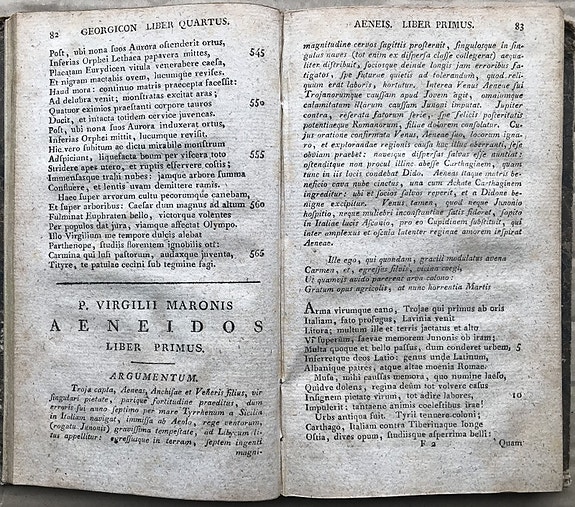 82 GEORGICON LIBER QUARTUS.
Poſt, ubi nona ſuos Aurora oſtenderit ortus, 545
Inferias Orphei Lethæa papavera mittes,
Placatam Eurydicen vitula venerabere cæſa,
Et nigram mactabis ovem, lucumque reviſes.
Haud mora: continuo matris præcepta faceſſit:
Ad delubra venit; monſtratas excitat aras; 550
Quatuor eximios præſtanti corpore tauros
Ducit, et intacta totidem cervice juvencas.
Poſt, ubi nona ſuos Aurora induxerat ortus,
Inferias Orphei mittit, lucumque reviſit.
Hic vero ſubitum ac dictu mirabile monſtrum
Adſpiciunt, liquefacta boum per viſcera toto 555
Stridere apes utero, et ruptis effervere coſtis;
Immenſaſque trahi nubes: jamque arbore ſumma
Confluere, et lentis uvam demittere ramis.
Hæc ſuper arvorum cultu pecorumque canebam,
Et ſuper arboribus: Cæſar dum magnus ad altum 560
Fulminat Euphraten bello, victorque volentes
Per populos dat jura, viamque affectat Olympo.
Illo Virgilium me tempore dulcis alebat
Parthenope, ſtudiis florentem ignobilis oti:
Carmina qui luſi paſtorum, audaxque juventa, 565
Tityre, te patulæ cecini ſub tegmine fagi.
P. VIRGILII MARONIS
AENEIDOS
LIBER PRIMUS.
ARGUMENTUM.
Troja capta, Aeneas, Anchiſæ et Veneris filius, vir
ſingulari pietate, parique fortitudine præditus, dum
erroris ſui anno ſeptimo per mare Tyrrhenum a Sicilia
in Italiam navigat, immiſſa ab Aeolo, rege ventorum,
(rogatu Junonis) graviſſima tempeſtate, ad Libycum li-
tus appellitur: egreſſuſque in terram, ſeptem ingenti
magni-
AENEIS. LIBER PRIMUS. 83
magnitudine cervos ſagittis proſternit, ſinguloſque in ſin-
gulas naves (tot enim ex diſperſa claſſe collegerat) æqua-
liter diſtribuit, ſocioſque deinde longis jam erroribus fa-
tigatos, ſpe futuræ quietis ad tolerandum, quod reli-
quum erat laboris, hortatur. Interea Venus Aeneæ ſui
Trojanorumque cauſſam apud Jovem agit, omniumque
calamitatum illarum cauſſam Junoni imputat. Jupiter
contra, reſerata fatorum ſerie, ſpe felicis poſteritatis
potentiæque Romanorum, filiæ dolorem conſolatur. Cu-
jus oratione confirmata Venus, Aeneæ ſuo, locorum igna-
ro, et explorandæ regionis cauſa hac illuc oberranti, ſeſe
obviam præbet: naveſque diſperſas ſalvas eſſe nuntiat:
oſtenditque non procul illinc abeſſe Carthaginem, quam
tunc in iis locis condebat Dido. Aeneas itaque matris be-
neficio cava nube cinctus, una cum Achate Carthaginem
ingreditur: ubi et ſocios ſalvos reperit, et a Didone be-
nigne excipitur. Venus tamen, quod neque Junonio
hoſpitio, neque muliebri inconſtantiæ ſatis fideret, ſopito
in Italiæ lucis Aſcanio, pro eo Cupidinem ſubſtituit, qui
inter amplexus et oſcula latenter reginæ amorem inſpirat
Aeneæ.
Ille ego, qui quondam, gracili modulatus avena
Carmen, et, egreſſus ſilvis, vicina coegi,
Ut quamvis avido parerent arva colono:
Gratum opus agricolis, at nunc horrentia Martis
Arma virumque cano, Trojæ qui primus ab oris
Italiam, fato profugus, Lavinia venit
Litora; multum ille et terris jactatus et alto
Vi ſuperum, ſævæ memorem Junonis ob iram;
Multa quoque et bello paſſus, dum conderet urbem, 5
Inferretque deos Latio: genus unde Latinum,
Albanique patres, atque altæ mœnia Romæ.
Muſa, mihi cauſſas memora, quo numine læſo,
Quidve dolens, regina deûm tot volvere caſus
Inſignem pietate virum, tot adire labores, 10
Impulerit: tantæne animis cœleſtibus iræ!
Urbs antiqua fuit, Tyrii tenuere coloni;
Carthago, Italiam contra Tiberinaque longe
Oſtia, dives opum, ſtudiiſque aſperrima belli:
F 2 Quam